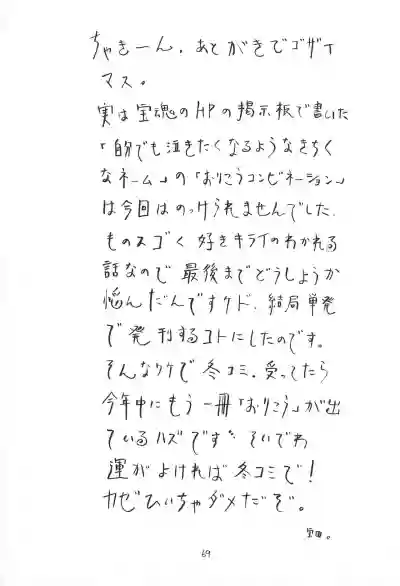 ちゃきーん。あとがきでゴザイ
マス。
実は宝魂のHPの掲示板で書いた
「自分でも泣きたくなるようなきちく
なネーム」の「おりこうコンビネーション」
は今回はのっけられませんでした。
ものスゴく好きキライのわかれる
話なので最後までどうしようか
悩んだんですケド、結局単発
で発刊するコトにしたのです。
そんなワケで冬コミ、受ってたら
今年中にもう一冊「おりこう」が出
ているハズです。そいでわ
運がよければ冬コミで!
カゼひいちゃダメだぞ。
69